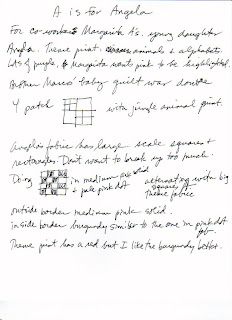 A is for Angela
For co-worker Margarita A's. young daughter
Angela. Theme print: animals & alphabets
Lots of purple, & Margarita want pink to be highlighted.
Another Marcos' baby quilt was double
4 patch with jungle animal print.
Angela's fabric has large scale squares &
rectangles. Don't want to break up too much.
Doing in medium pink solid alternating with big
& pale pink dot squares of
theme fabric
outside border medium pink solid.
inside border burgundy similar to the one in pink dot
fab.
Theme print has a red but I like the burgundy better.